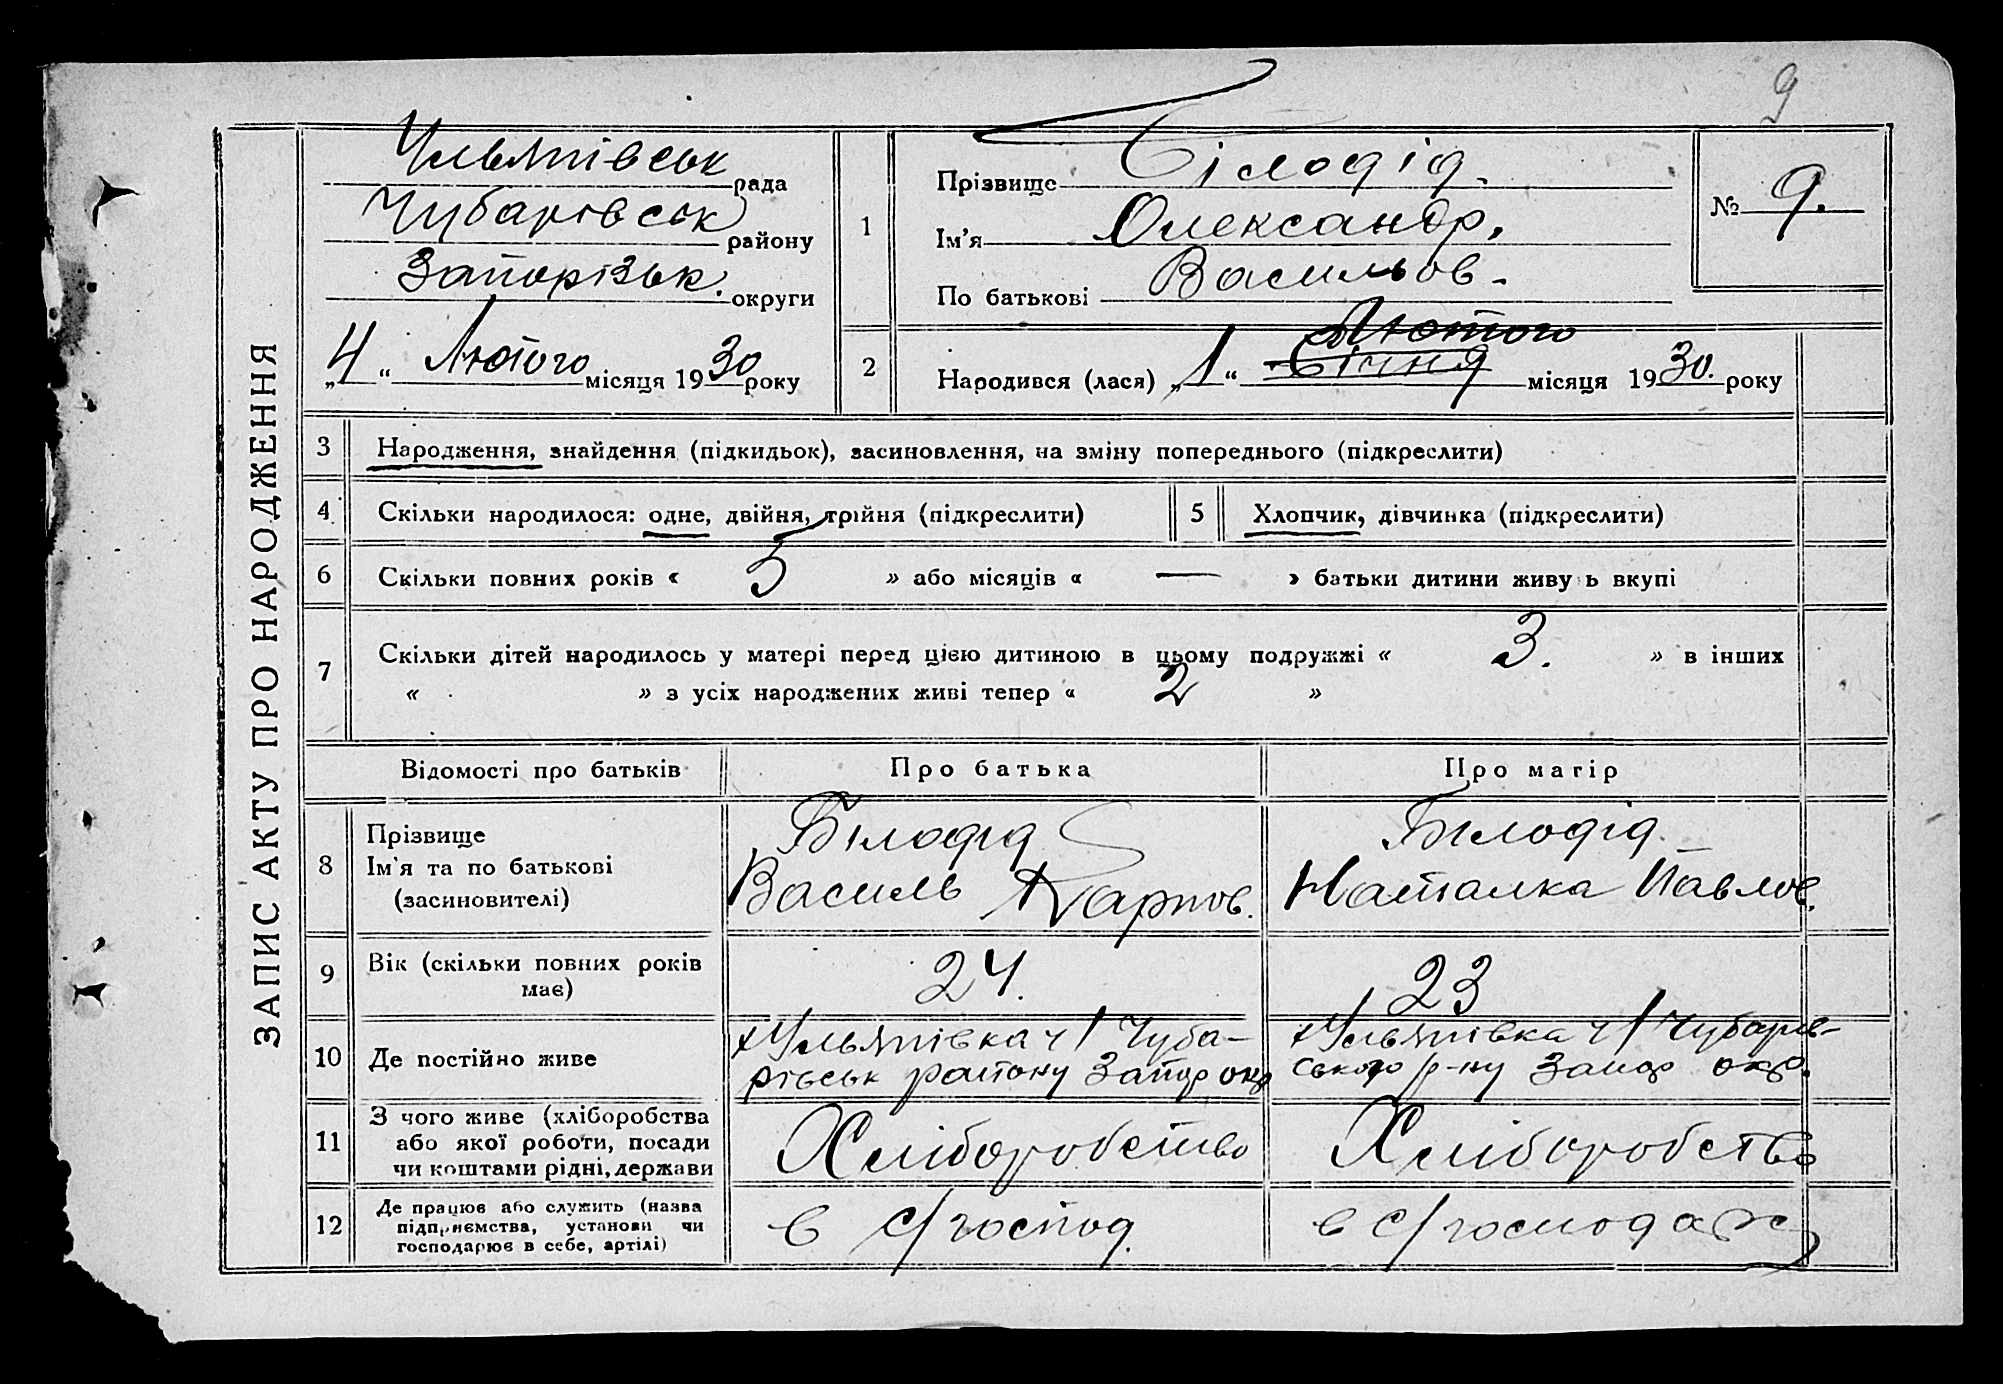 9
ЗАПИС АКТУ ПРО НАРОДЖЕННЯ
Ульянівськ рада
Чубарівськ району
Запорізьк. округи
„4“ Лютого місяця 1930 року
1
Прізвище Білодід.
Ім'я Олександр.
По батькові Васильов.
№ 9.
2
Лютого
Народився (лася) „1“ Січня місяця 1930. року
3 Народження, знайдення (підкидьок), засиновлення, на зміну попереднього (підкреслити)
4 Скільки народилося: одне, двійня, трійня (підкреслити)
5 Хлопчик, дівчинка (підкреслити)
6 Скільки повних років « 5 » або місяців « — » батьки дитини живуть вкупі
7 Скільки дітей народилось у матері перед цією дитиною в цьому подружжі « 3. » в інших
« » з усіх народжених живі тепер « 2 »
Відомості про батьків Про батька Про матір
8 Прізвище
Ім'я та по батькові
(засиновителі)
Білодід
Василь Карпов.
Білодід.
Наталка Павлов.
9 Вік (скільки повних років
має)
24.
23
10 Де постійно живе
Ульянівка ч/ Чуба-
рівськ району Запор окр
Ульянівка ч/ Чубарів-
ського р-ну Запор окр.
11 З чого живе (хліборобства
або якої роботи, посади
чи коштами рідні, держави
Хліборобство
Хліборобство
12 Де працює або служить (назва
підприємства, установи чи
господарює в себе, артілі)
в с/господ.
в с/господарс